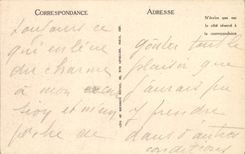 CORRESPONDANCE
toujours ce
qui enlève
du charme
à mon
et m'em
pêche de
ADRESSE
N'écrire que sur
le côté réservé à
la correspondance
goûter tout le
plaisir que
j'aurais pu
y prendre
dans d'autres
conditions